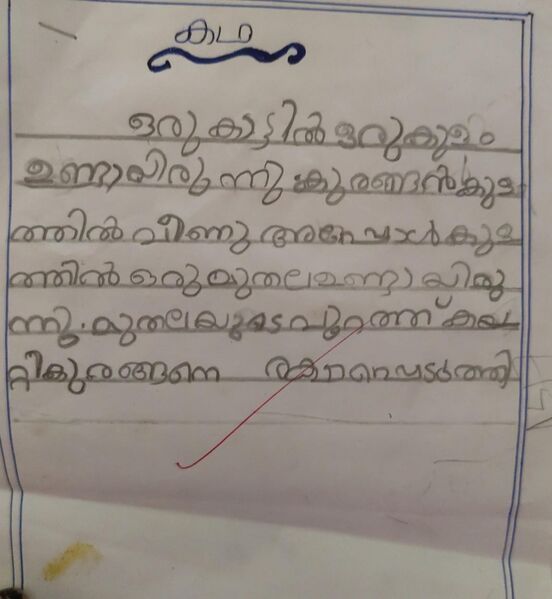 കഥ
ഒരു കാട്ടിൽ ഒരുകുളം
ഉണ്ടായിരുന്നു കുരങ്ങൻകുള
ത്തിൽ വീണു അപ്പോൾകുള
ത്തിൽ ഒരുമുതലഉണ്ടായിരു
ന്നു. മുതലയുടെപുറത്ത് കയ
റ്റികുരങ്ങനെ രക്ഷപെടുത്തി